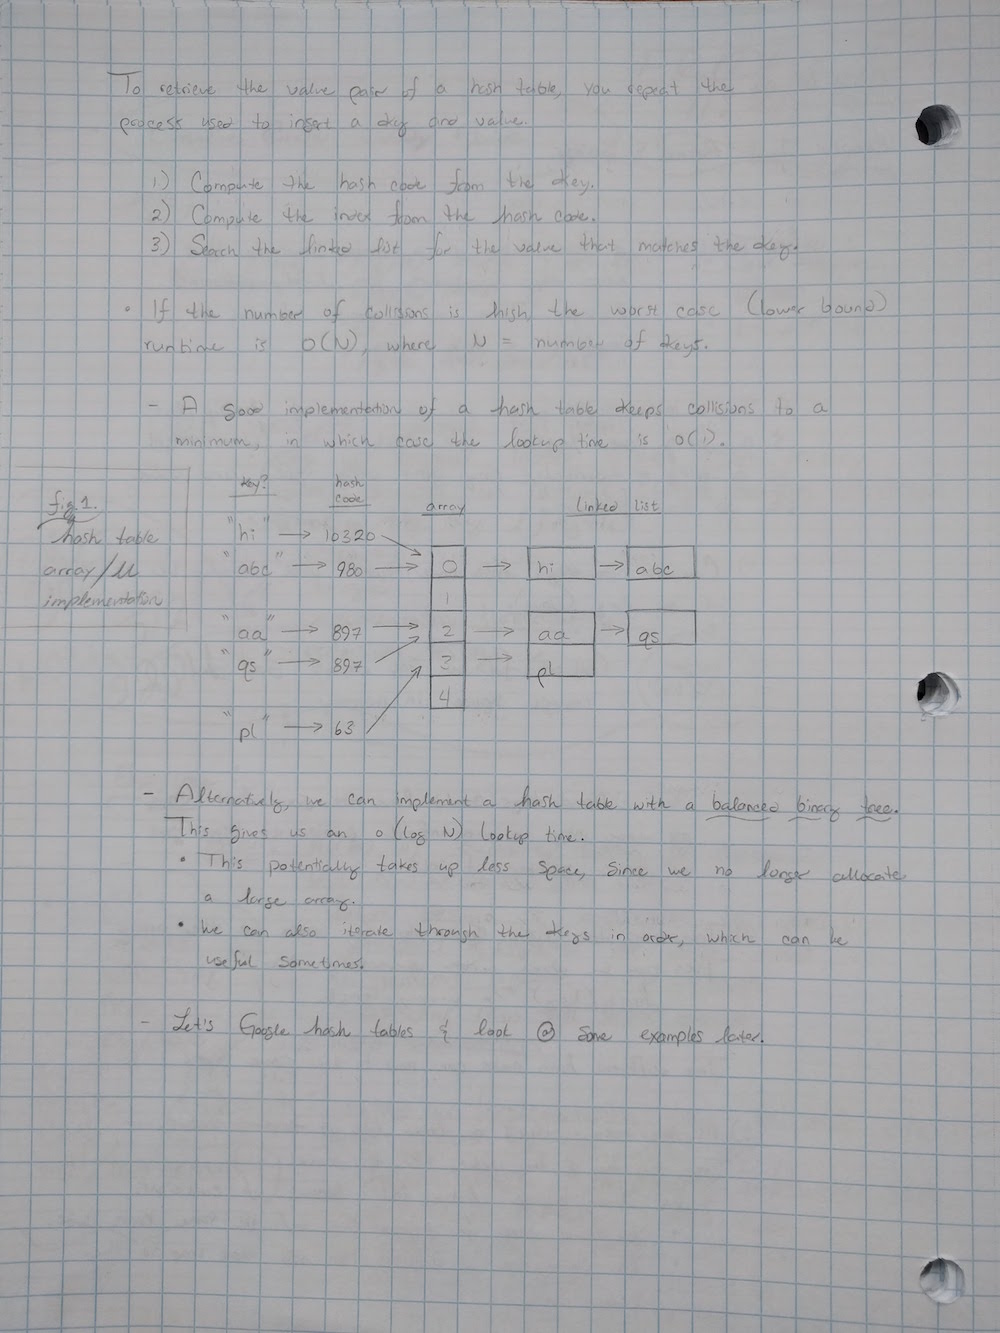 To retrieve the value pair of a hash table, you repeat the
process used to insert a key and value.
1) Compute the hash code from the key.
2) Compute the index from the hash code.
3) Search the linked list for the value that matches the key.
• If the number of collisions is high, the worst case (lower bound)
runtime is O(N), where N = number of keys.
- A good implementation of a hash table keeps collisions to a
minimum, in which case the lookup time is O(1).
fig 1.
hash table
array/ll
implementation
key? hash code array linked list
"hi" → 10320 → 0 → hi → abc
"abc" → 980 →
1
"aa" → 897 → 2 → aa → qs
"qs" → 897 3 → pl
4
"pl" → 63
- Alternatively, we can implement a hash table with a balanced binary tree.
This gives us an O(log N) lookup time.
• This potentially takes up less space, since we no longer allocate
a large array.
• We can also iterate through the keys in order, which can be
useful sometimes.
- Let's Google hash tables & look @ some examples later.